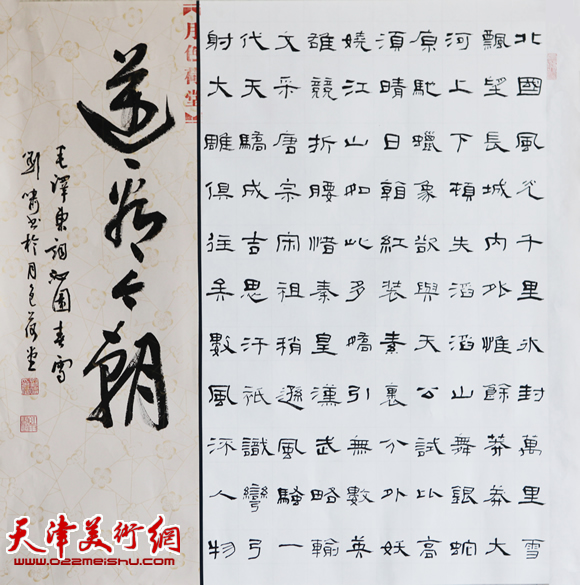 北國風光千里冰封萬里雪
飄望長城內外惟餘莽莽大
河上下頓失滔滔山舞銀蛇
原馳蠟象欲與天公試比高
須晴日看紅裝素裹分外妖
嬈江山如此多嬌引無數英
雄競折腰惜秦皇漢武略輸
文采唐宗宋祖稍遜風騷一
代天驕成吉思汗祇識彎弓
射大雕俱往矣數風流人物
月色荷堂
還看今朝
毛澤東詞沁園春雪
劉嘯書於月色荷堂
天津美術網
www.022meishu.com